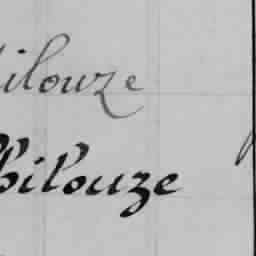 ilouze
bilouze